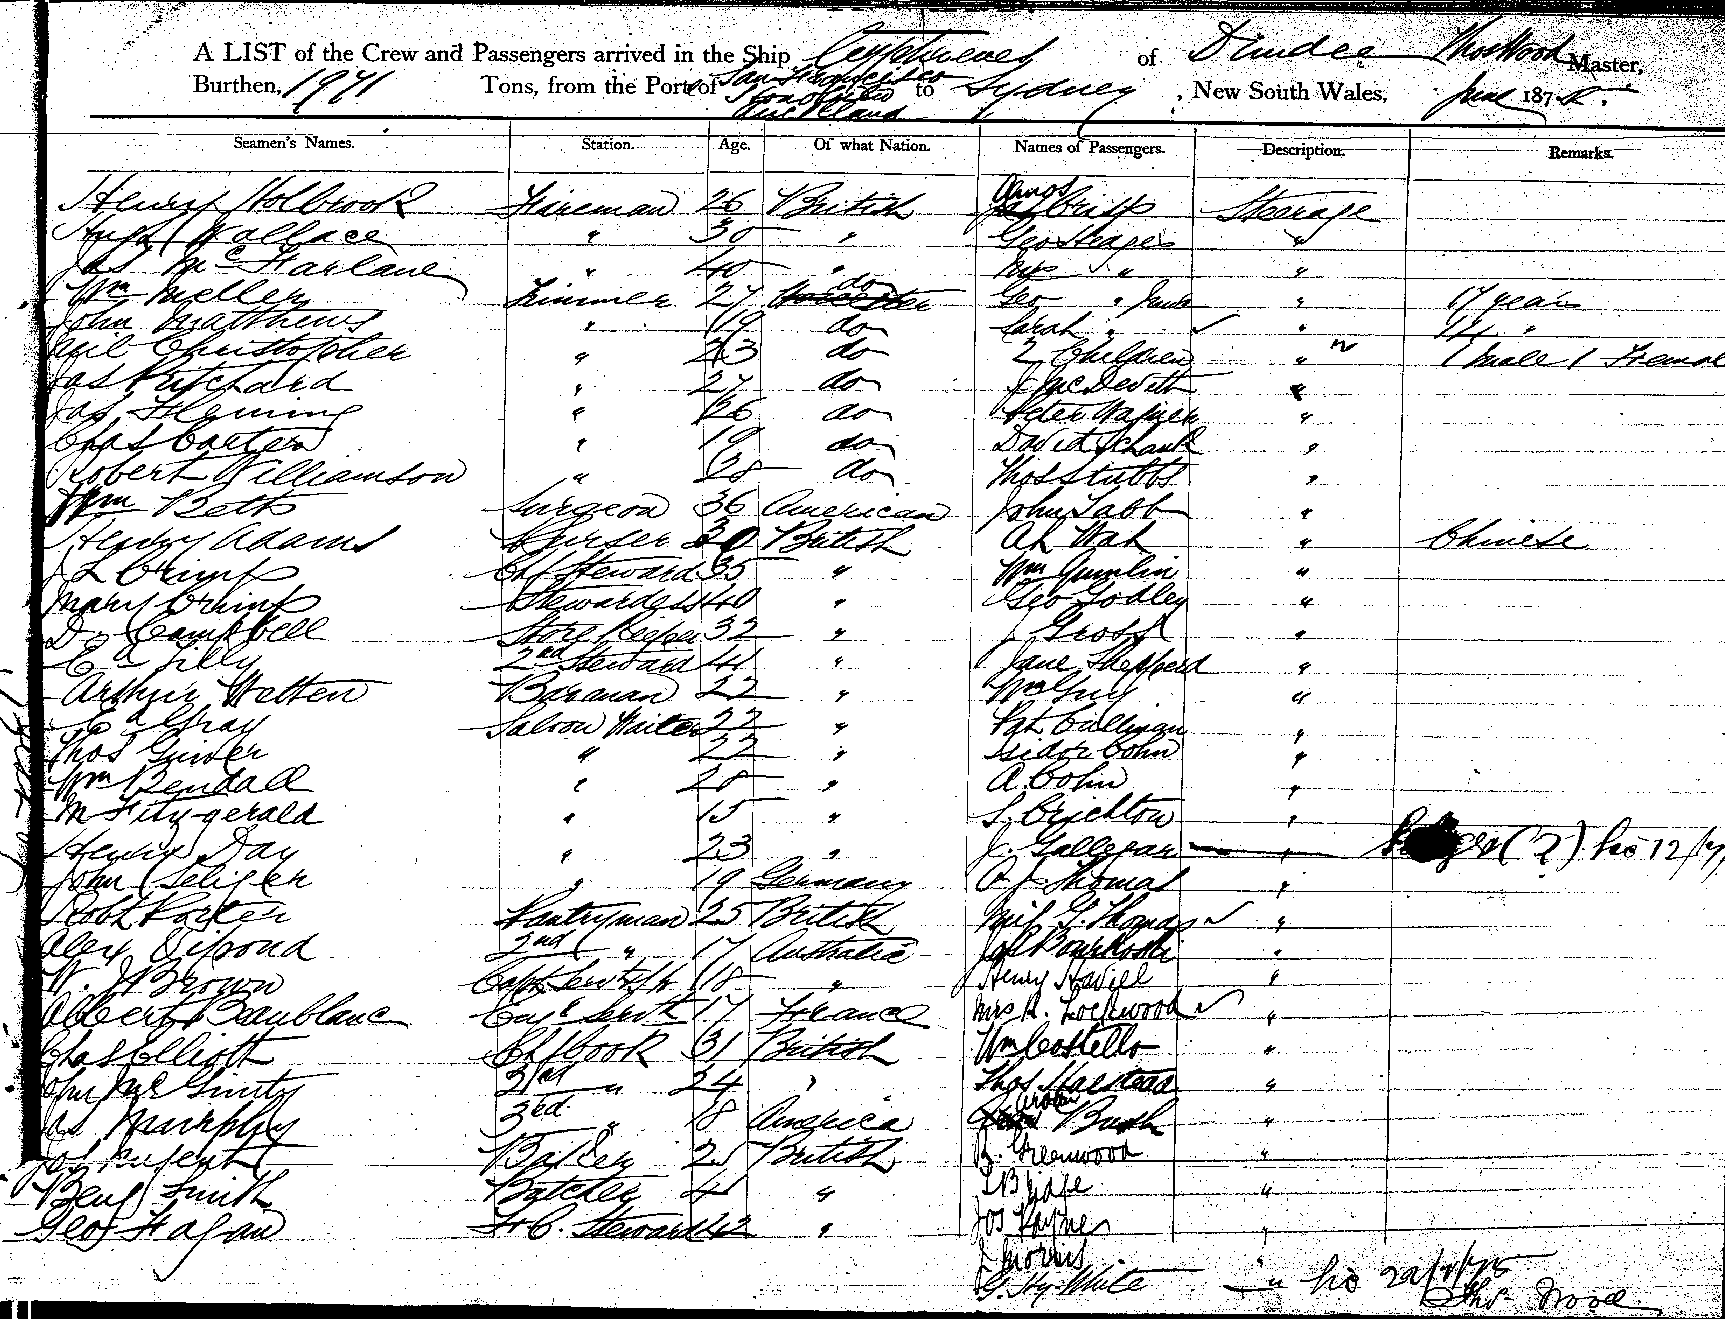 A LIST of the Crew and Passengers arrived in the Ship Cyphrenes of Dundee Thos Wood Master,
Burthen, 1971 Tons, from the Port of San Francisco Honolulu Auckland to Sydney, New South Wales, June 1875.
Seamen's Names. Station. Age. Of what Nation. Names of Passengers. Description. Remarks.
Henry Holbrook Fireman 26 British Amos Crisp Steerage
Hugh Wallace " 30 " Geo "
Jas McFarlane " 40 " Mrs " "
Wm Meller Trimmer 27 do Geo " Junr " 17 years
John Matthews " 19 do Sarah " " 14 "
Neil Christopher " 23 do 2 Children " 1 male 1 Female
Jas Pritchard " 27 do J McDevitt "
Jas Fleming " 26 do Peter Wagner "
Chas Carter " 19 do David Schank "
Robert Williamson " 28 do Thos Stubbs "
Wm Betts Surgeon 36 American John Tabb "
Henry Adams Purser 30 British Ah Wah " Chinese
J L Crimp Chf Steward 35 " Wm Quinlin "
Mary Crimp Stewardess 40 " Geo Tobley "
D. Campbell Store Keeper 32 " J Gross "
Ed Lilly 2nd Steward 41 " Jane Shepperd "
Arthur Wetten Barman 22 " Wm Guy "
Ed Gray Saloon Waiter 22 " Pat Culligan "
Thos Guiver " 22 " Isidor Cohn "
Wm Bendall " 28 " A. Cohn "
M Fitzgerald " 15 " S. Crichton "
Henry Day " 23 " J. Gallegan " (?) 12/7
John Seliger " 19 Germany P J Thomas "
Robt Porter Pantryman 25 British Miss G. Thomas "
Alex Sipond 2nd " 17 Australia Jos "
W. J Brown Capt Servt 18 " Henry Haviel "
Albert Baublanc Engr Servt 17 France Mrs R. Lockwood "
Chas Elliott Chf Cook 31 British Wm Costello "
John McGinity 2nd " 24 " Thos Halstead "
Jas Murphy 3rd " 18 America Bush "
Jos Nugent Baker 25 British B. Greenwood "
Benj Smith Butcher 41 " "
Geo Hagan Fr C. Steward 42 " Jos Payne "
J Morris "
G. Hy White "
Thos Wood